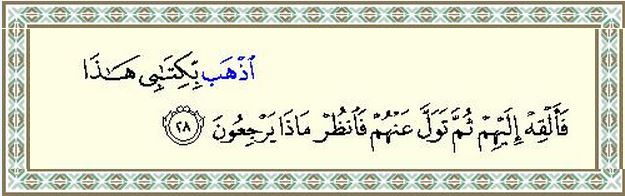 ٱذْهَب بِّكِتَـٰبِى هَـٰذَا
فَأَلْقِهْ إِلَيْهِمْ ثُمَّ تَوَلَّ عَنْهُمْ فَٱنظُرْ مَاذَا يَرْجِعُونَ ٢٨